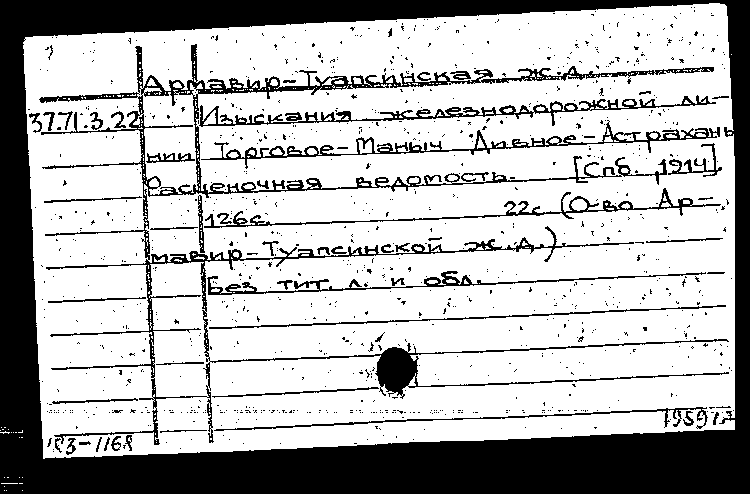 Армавир-Туапсинская ж.д.
37.71.3.22 Изыскания железнодорожной ли-
нии Торговое-Маныч Дивное-Астрахань
Расценочная ведомость. [Спб., 1914].
126с. 22с (О-во Ар-
мавир-Туапсинской ж.д.).
Без тит. л. и обл.